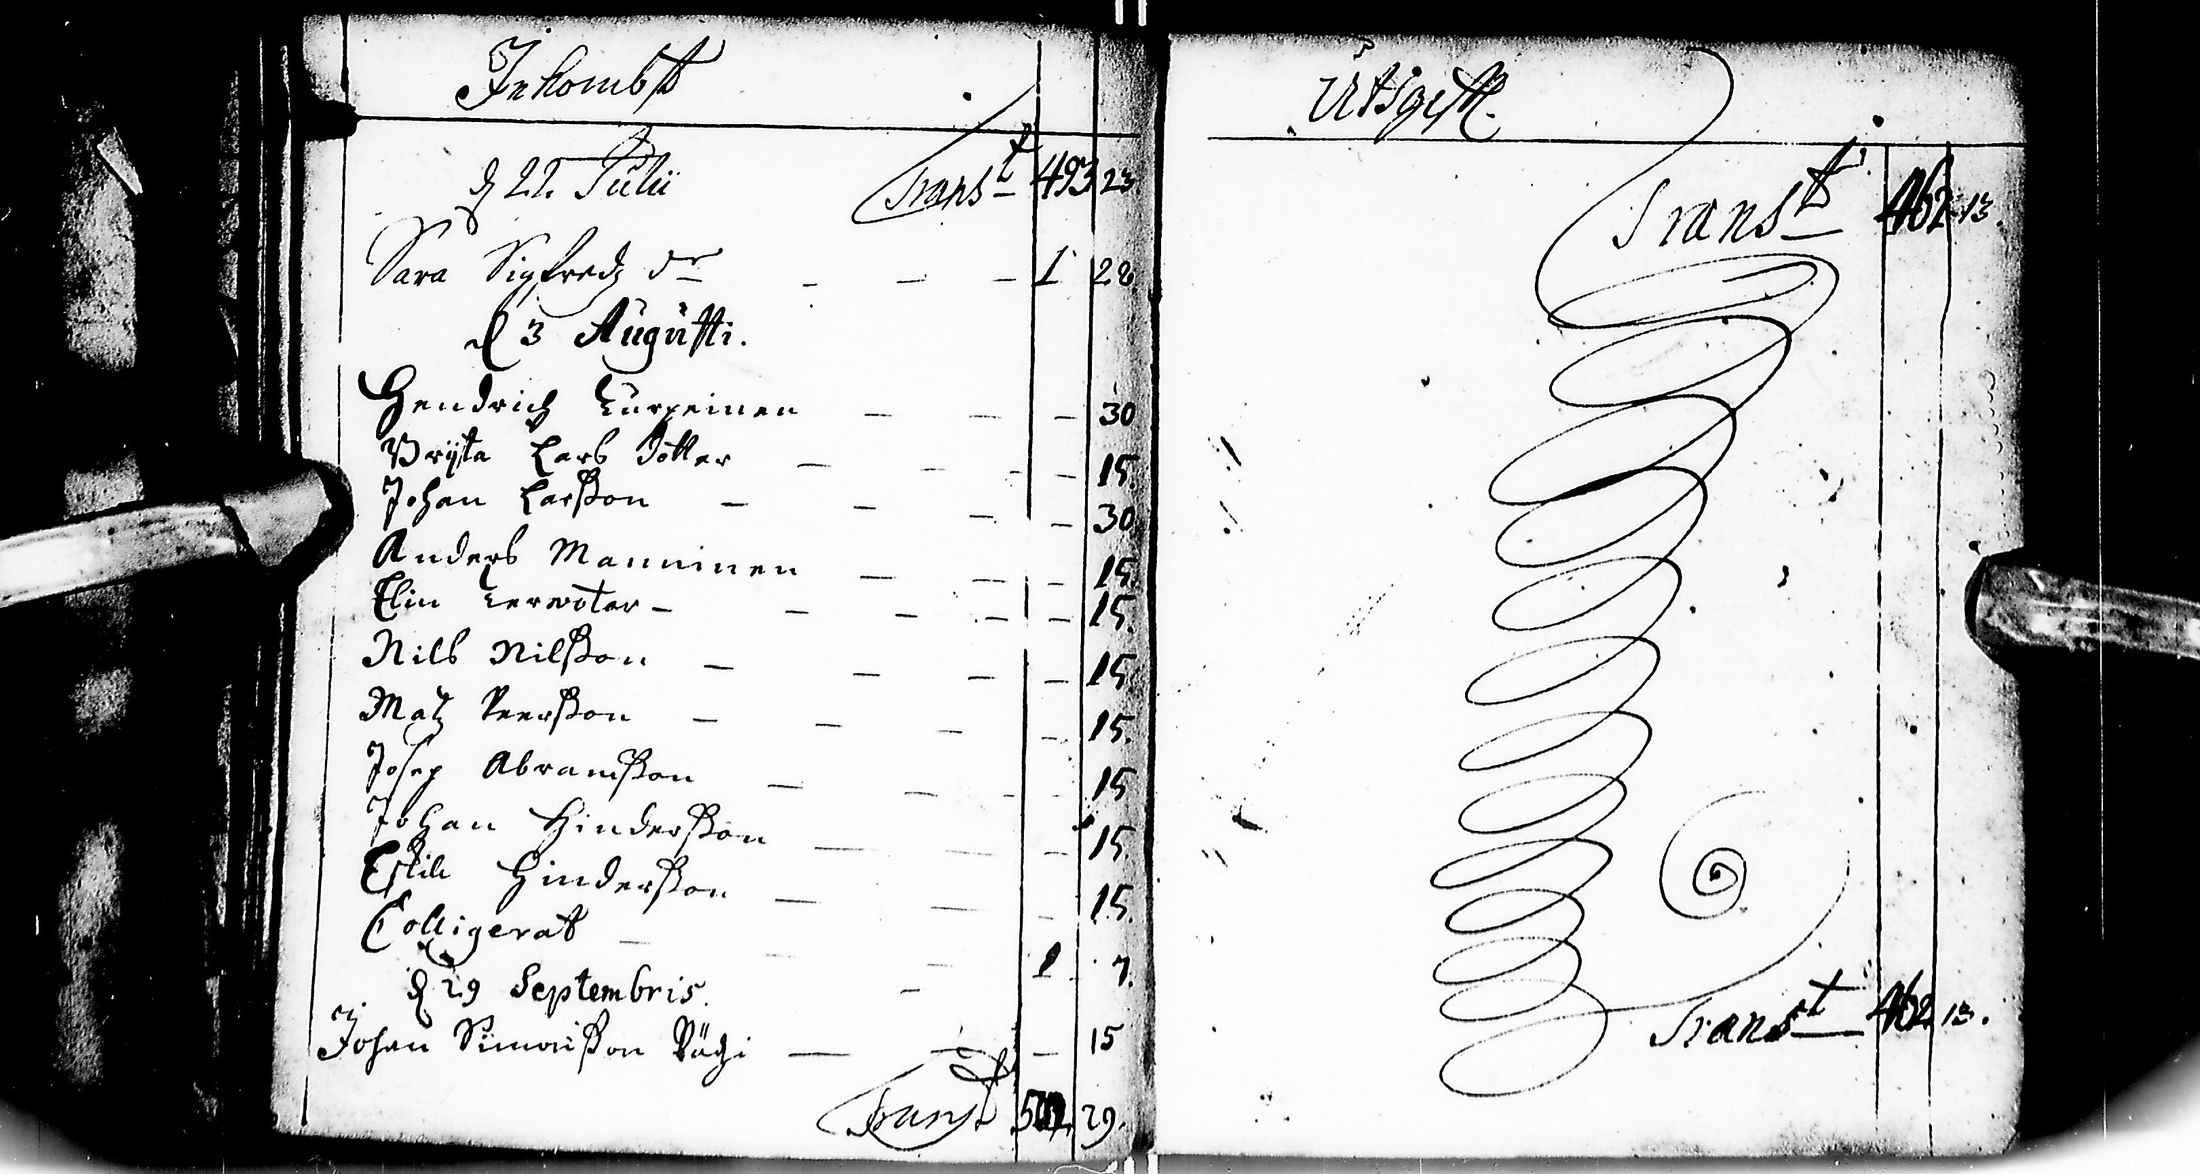 Inkombst
d 22. Julii Transt 493 23
Sara Sigfredz dr - - - 1 28.
d 3 Augusti.
Hendrich Turpeinen - - - 30
Brijta Lars dotter - - - - 15
Johan Larsson - - - - 30
Anders Manninen - - - 15.
Elin - - - - - 15.
Nils Nilsson - - - - 15.
Matz Peersson - - - - 15.
Josep Abramsson - - - - 15
Johan Hindersson - - - 15
Eskill Hindersson - - - 15.
Colligerat - - - 1 7.
d 29 Septembris.
Johan Simonsson - - - 15
Transt 29.
Utsgifft.
Transt 462 13.
Transt 462 13.